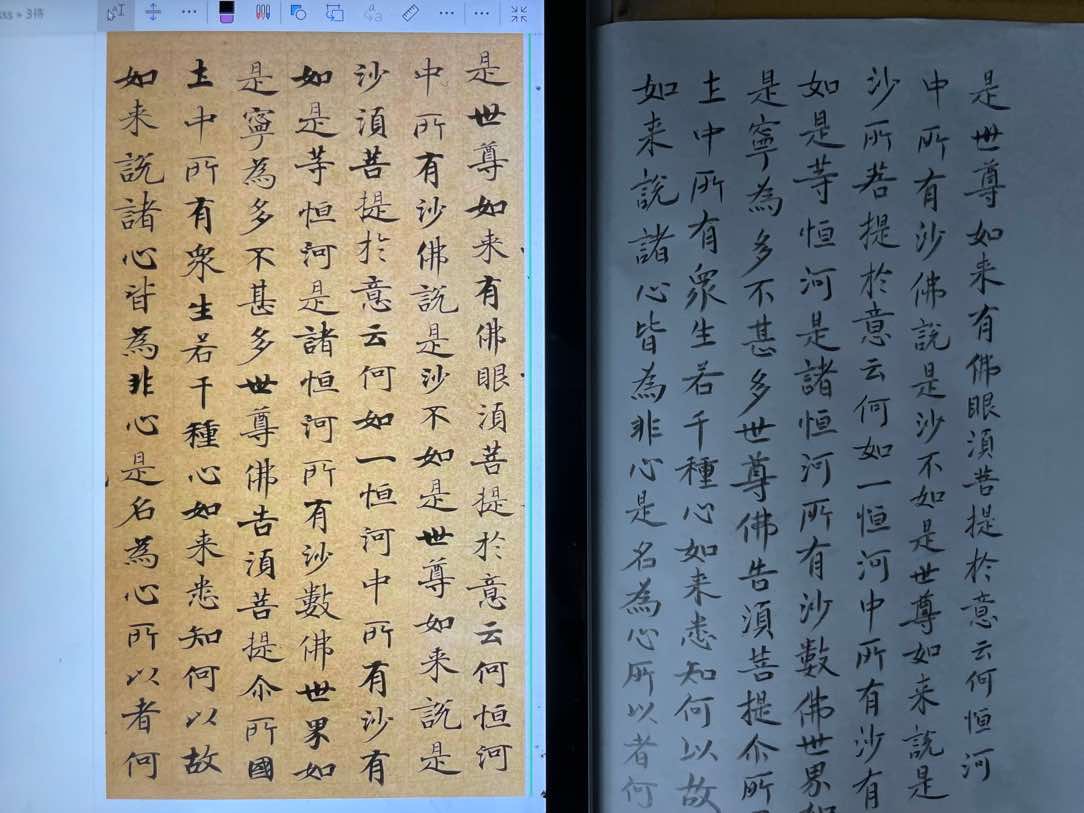 sss » 3待
是世尊如来有佛眼湏菩提扵意云何恒河
中所有沙佛説是沙不如是世尊如来説是
沙湏菩提扵意云何如一恒河中所有沙有
如是等恒河是諸恒河所有沙數佛世界如
是寧為多不甚多世尊佛告湏菩提尒所國
土中所有衆生若干種心如来悉知何以故
如来説諸心皆為非心是名為心所以者何
是世尊如来有佛眼湏菩提扵意云何恒河
中所有沙佛説是沙不如是世尊如来説是
沙所菩提扵意云何如一恒河中所有沙有
如是等恒河是諸恒河所有沙數佛世界如
是寧為多不甚多世尊佛告湏菩提尒所
土中所有衆生若干種心如来悉知何以故
如来説諸心皆為非心是名為心所以者何